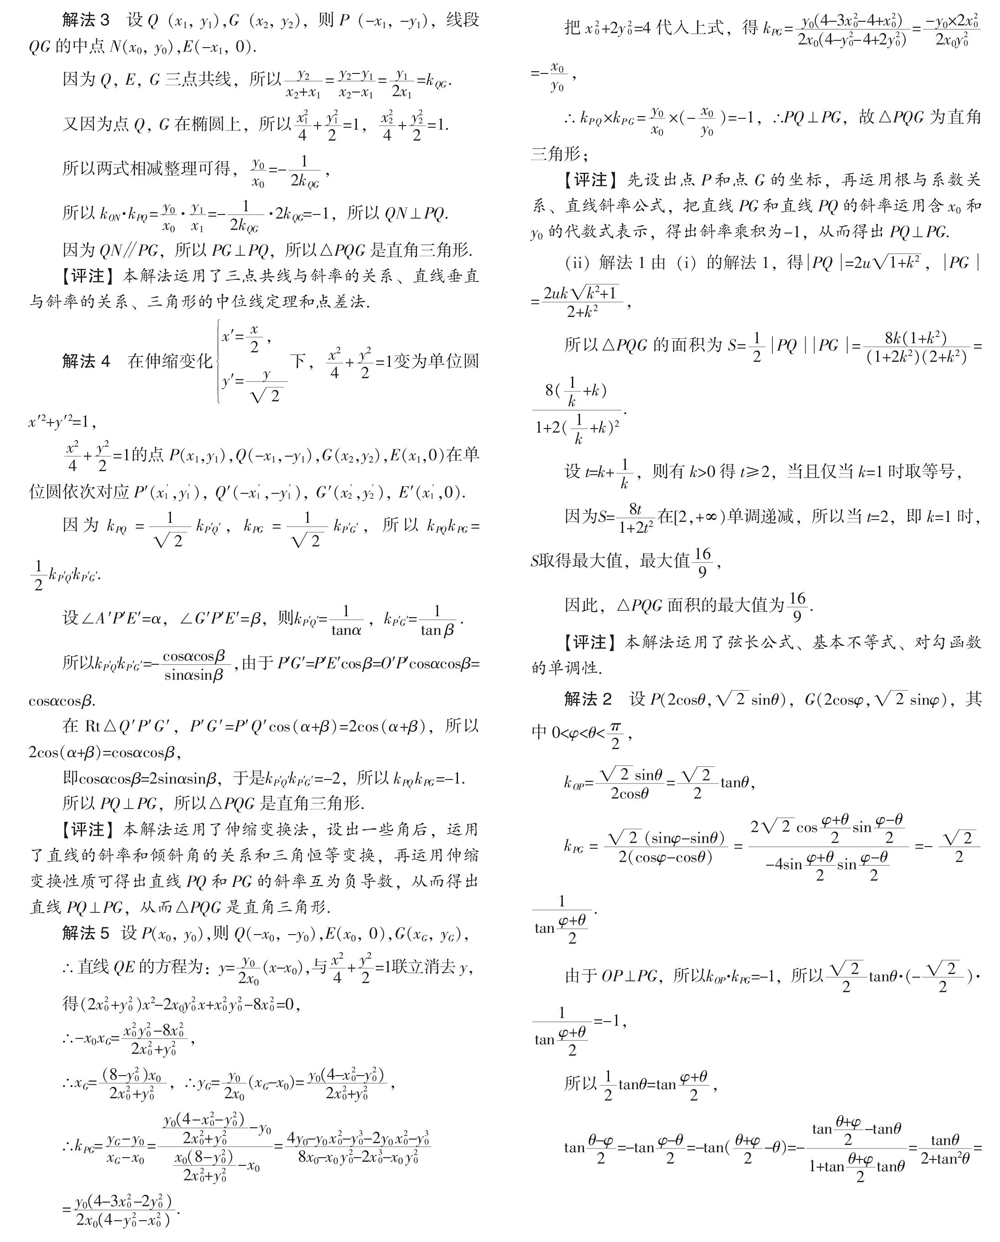 解法 3 设 Q (x₁, y₁),G (x₂, y₂), 则 P (-x₁, -y₁), 线段
QG 的中点 N(x₀, y₀),E(-x₁, 0).
因为 Q, E, G 三点共线, 所以 y₂/(x₂+x₁) = (y₂-y₁)/(x₂-x₁) = y₁/(2x₁) =k_QG.
又因为点 Q, G 在椭圆上, 所以 x₁²/4 + y₁²/2 =1, x₂²/4 + y₂²/2 =1.
所以两式相减整理可得, y₀/x₀ =- 1/(2k_QG),
所以 k_ON·k_PQ= y₀/x₀ · y₁/x₁ =- 1/(2k_QG) ·2k_QG=-1, 所以 QN⊥PQ.
因为 QN∥PG, 所以 PG⊥PQ, 所以△PQG 是直角三角形.
【评注】本解法运用了三点共线与斜率的关系、直线垂直
与斜率的关系、三角形的中位线定理和点差法.
解法 4 在伸缩变化 { x′= x/2, y′= y/√2 下, x²/4 + y²/2 =1变为单位圆
x′²+y′²=1,
x²/4 + y²/2 =1的点 P(x₁,y₁),Q(-x₁,-y₁),G(x₂,y₂),E(x₁,0)在单
位圆依次对应 P′(x₁′,y₁′), Q′(-x₁′,-y₁′), G′(x₂′,y₂′), E′(x₁′,0).
因为 k_PQ = 1/√2 k_P′Q′, k_PG = 1/√2 k_P′G′, 所以 k_PQk_PG=
1/2 k_P′Q′k_P′G′.
设∠A′P′E′=α, ∠G′P′E′=β, 则k_P′Q′= 1/tanα, k_P′G′= 1/tanβ.
所以k_P′Q′k_P′G′=- cosαcosβ/sinαsinβ,由于 P′G′=P′E′cosβ=O′P′cosαcosβ=
cosαcosβ.
在 Rt△Q′P′G′, P′G′=P′Q′cos(α+β)=2cos(α+β), 所以
2cos(α+β)=cosαcosβ,
即cosαcosβ=2sinαsinβ, 于是k_P′Q′k_P′G′=-2, 所以 k_PQk_PG=-1.
所以 PQ⊥PG, 所以△PQG 是直角三角形.
【评注】本解法运用了伸缩变换法, 设出一些角后, 运用
了直线的斜率和倾斜角的关系和三角恒等变换, 再运用伸缩
变换性质可得出直线 PQ 和 PG 的斜率互为负导数, 从而得出
直线 PQ⊥PG, 从而△PQG 是直角三角形.
解法 5 设 P(x₀, y₀),则 Q(-x₀, -y₀),E(x₀, 0),G(x_G, y_G),
∴直线 QE 的方程为: y= y₀/(2x₀) (x-x₀),与 x²/4 + y²/2 =1联立消去 y,
得(2x₀²+y₀²)x²-2x₀y₀²x+x₀²y₀²-8x₀²=0,
∴-x₀x_G= (x₀²y₀²-8x₀²)/(2x₀²+y₀²),
∴x_G= (8-y₀²)x₀/(2x₀²+y₀²), ∴y_G= y₀/(2x₀) (x_G-x₀)= y₀(4-x₀²-y₀²)/(2x₀²+y₀²),
∴k_PG= (y_G-y₀)/(x_G-x₀) = [y₀(4-x₀²-y₀²)/(2x₀²+y₀²) -y₀]/[x₀(8-y₀²)/(2x₀²+y₀²) -x₀] = (4y₀-y₀x₀²-y₀³-2y₀x₀²-y₀³)/(8x₀-x₀y₀²-2x₀³-x₀y₀²)
= y₀(4-3x₀²-2y₀²)/2x₀(4-y₀²-x₀²).
把 x₀²+2y₀²=4 代入上式, 得 k_PG= y₀(4-3x₀²-4+x₀²)/2x₀(4-y₀²-4+2y₀²) = (-y₀×2x₀²)/(2x₀y₀²)
=- x₀/y₀,
∴k_PQ×k_PG= y₀/x₀ ×(- x₀/y₀)=-1, ∴PQ⊥PG, 故△PQG 为直角
三角形;
【评注】先设出点 P 和点 G 的坐标, 再运用根与系数关
系、直线斜率公式, 把直线 PG 和直线 PQ 的斜率运用含 x₀ 和
y₀ 的代数式表示, 得出斜率乘积为-1, 从而得出 PQ⊥PG.
(ii) 解法 1 由 (i) 的解法 1, 得|PQ|=2u√(1+k²), |PG|
= 2uk√(k²+1)/(2+k²),
所以△PQG 的面积为 S= 1/2 |PQ||PG|= 8k(1+k²)/(1+2k²)(2+k²) =
8(1/k +k)/(1+2(1/k +k)²).
设 t=k+ 1/k, 则有 k>0 得 t≥2, 当且仅当 k=1 时取等号,
因为S= 8t/(1+2t²) 在[2,+∞)单调递减, 所以当 t=2, 即 k=1 时,
S取得最大值, 最大值 16/9,
因此, △PQG 面积的最大值为 16/9.
【评注】本解法运用了弦长公式、基本不等式、对勾函数
的单调性.
解法 2 设 P(2cosθ,√2 sinθ), G(2cosφ,√2 sinφ), 其
中 0<φ<θ< π/2,
k_OP= √2 sinθ/2cosθ = √2/2 tanθ,
k_PG = √2 (sinφ-sinθ)/2(cosφ-cosθ) = 2√2 cos (φ+θ)/2 sin (φ-θ)/2 / -4sin (φ+θ)/2 sin (φ-θ)/2 =- √2/2
1/tan (φ+θ)/2.
由于 OP⊥PG, 所以k_OP·k_PG=-1, 所以 √2/2 tanθ·(- √2/2)·
1/tan (φ+θ)/2 =-1,
所以 1/2 tanθ=tan (φ+θ)/2,
tan (θ-φ)/2 =-tan (φ-θ)/2 =-tan( (θ+φ)/2 -θ)=- [tan (θ+φ)/2 -tanθ]/[1+tan (θ+φ)/2 tanθ] = tanθ/(2+tan²θ) =